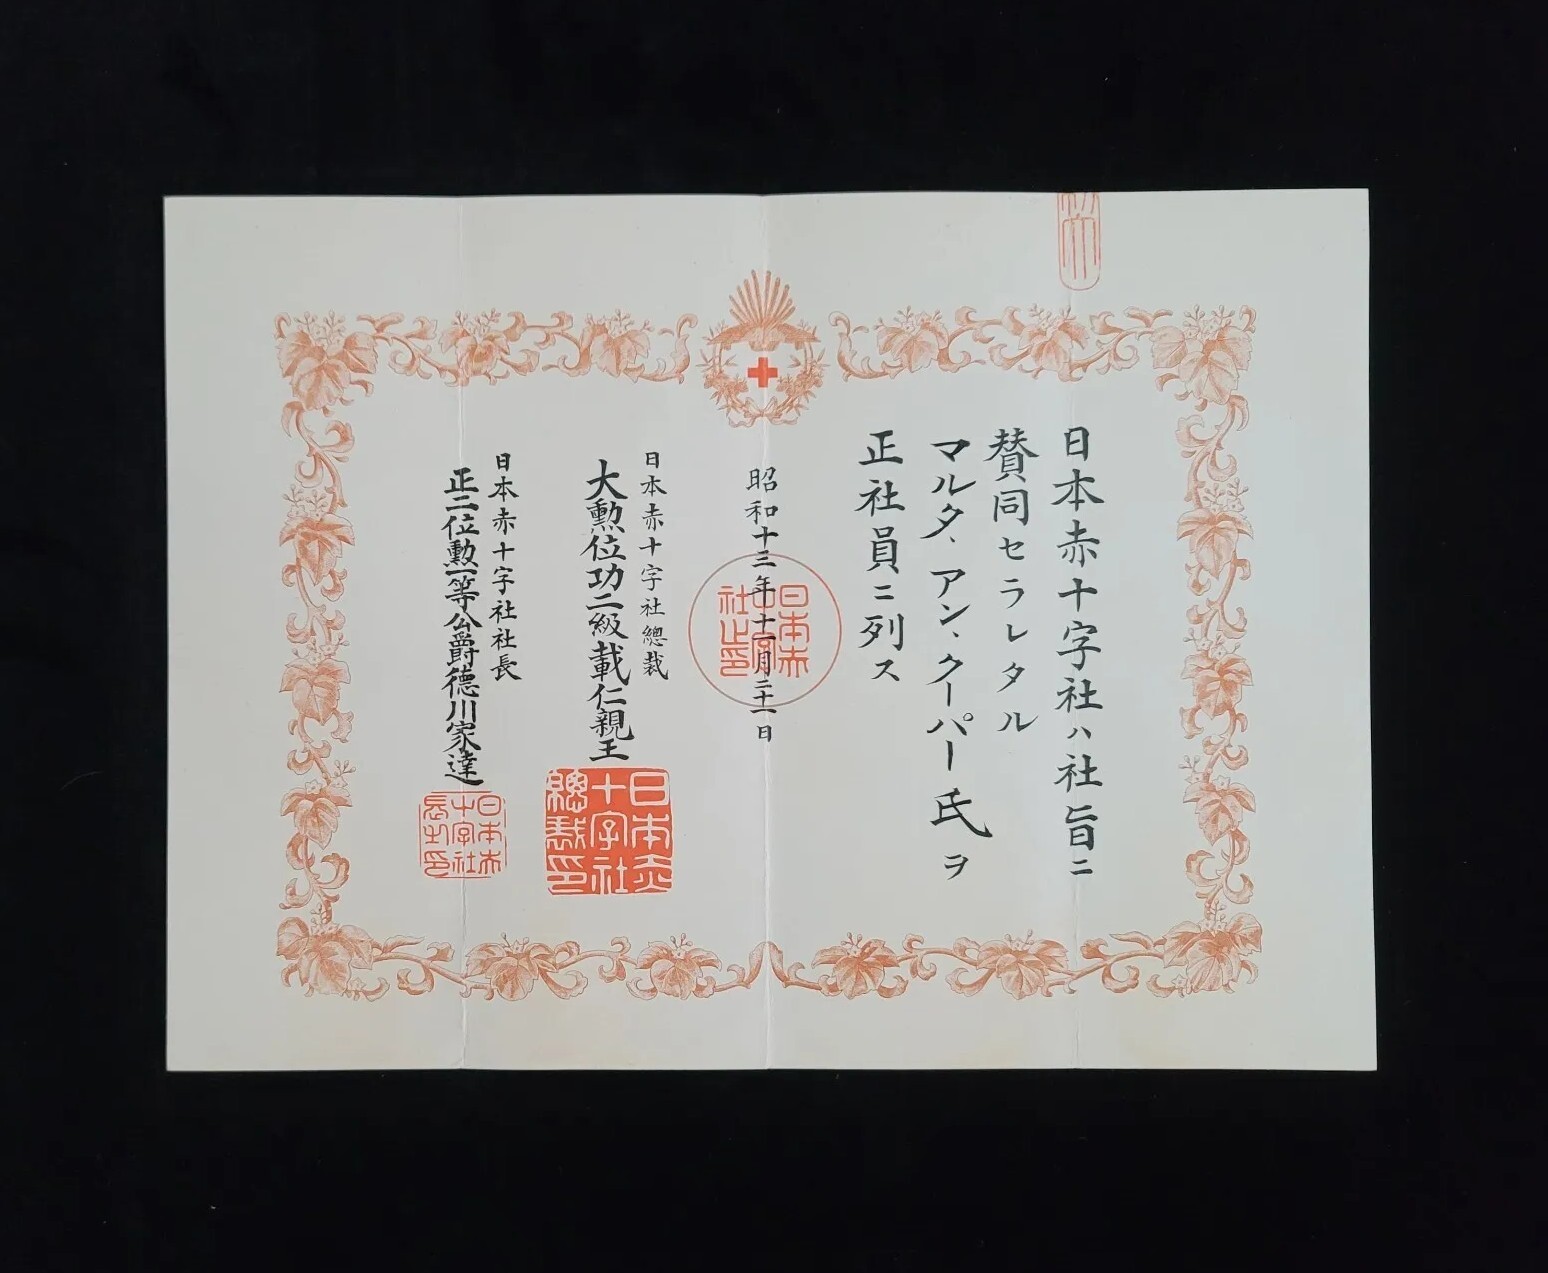 日本赤十字社ハ社旨ニ
賛同セラレタル
マルタ、アン、クーパー氏ヲ
正社員ニ列ス
昭和十三年十一月二十一日
日本赤十字社之印
日本赤十字社總裁
大勲位功二級載仁親王
日本赤十字社總裁印
日本赤十字社社長
正二位勲一等公爵德川家達
日本赤十字社社長之印